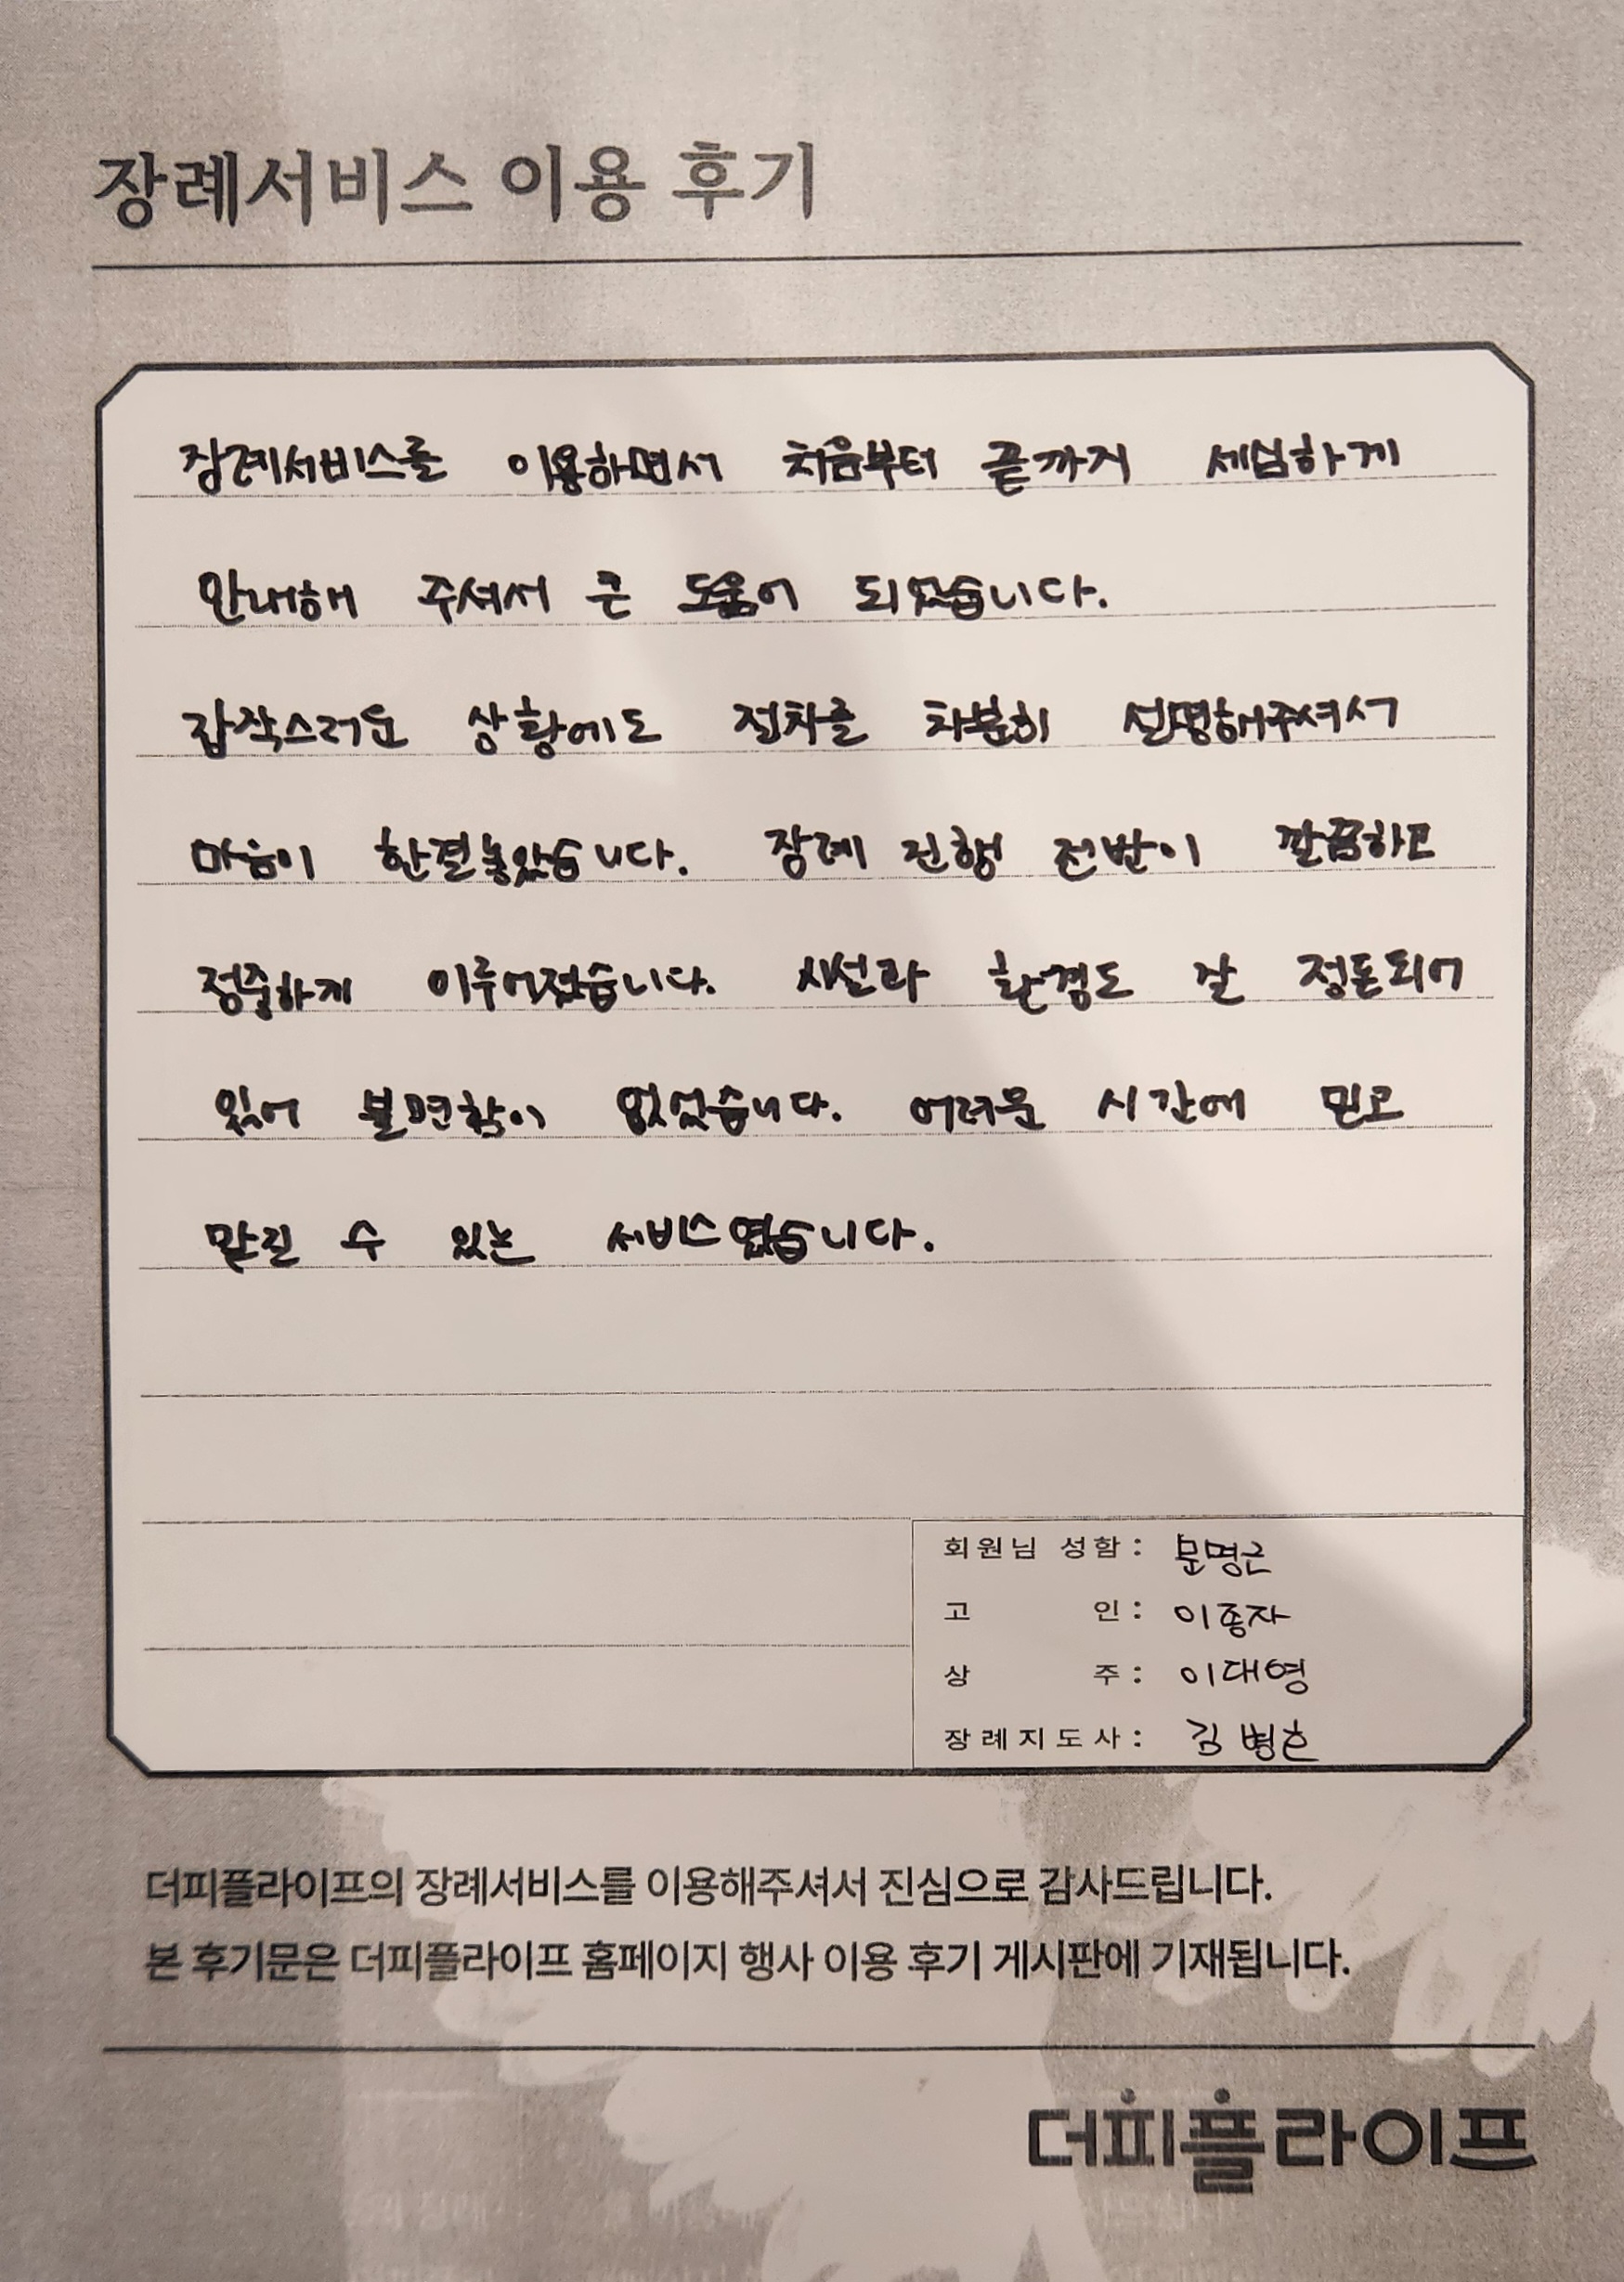 장례서비스 이용 후기
장례서비스를 이용하면서 처음부터 끝까지 세심하게
안내해 주셔서 큰 도움이 되었습니다.
갑작스러운 상황에도 절차를 차분히 설명해주셔서
마음이 한결놓았습니다. 장례 진행 전반이 깔끔하고
정중하게 이루어졌습니다. 시설과 환경도 잘 정돈되어
있어 불편함이 없었습니다. 어려운 시간에 믿고
맡길 수 있는 서비스였습니다.
회원님 성함 : 문명근
고 인 : 이종자
상 주 : 이대영
장례지도사 : 김병호
더피플라이프의 장례서비스를 이용해주셔서 진심으로 감사드립니다.
본 후기문은 더피플라이프 홈페이지 행사 이용 후기 게시판에 기재됩니다.
더피플라이프